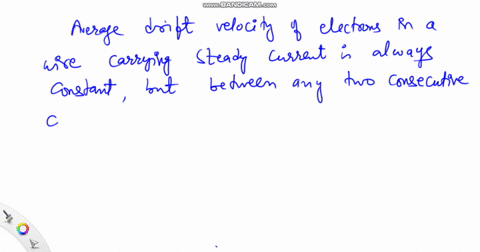 WWW.BANDICAM.COM
Average drift velocity of electrons in a
wire carrying steady current is always
constant, but between any two consecutive
c